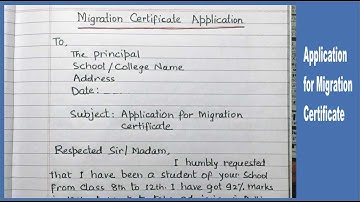 Migration Certificate Application
To,
The Principal
School/College Name
Address
Date: ---
Subject: Application for Migration
certificate
Respected Sir/Madam,
I humbly requested
that I have been a student of your School
from class 8th to 12th. I have got 92% marks
Application
for Migration
Certificate